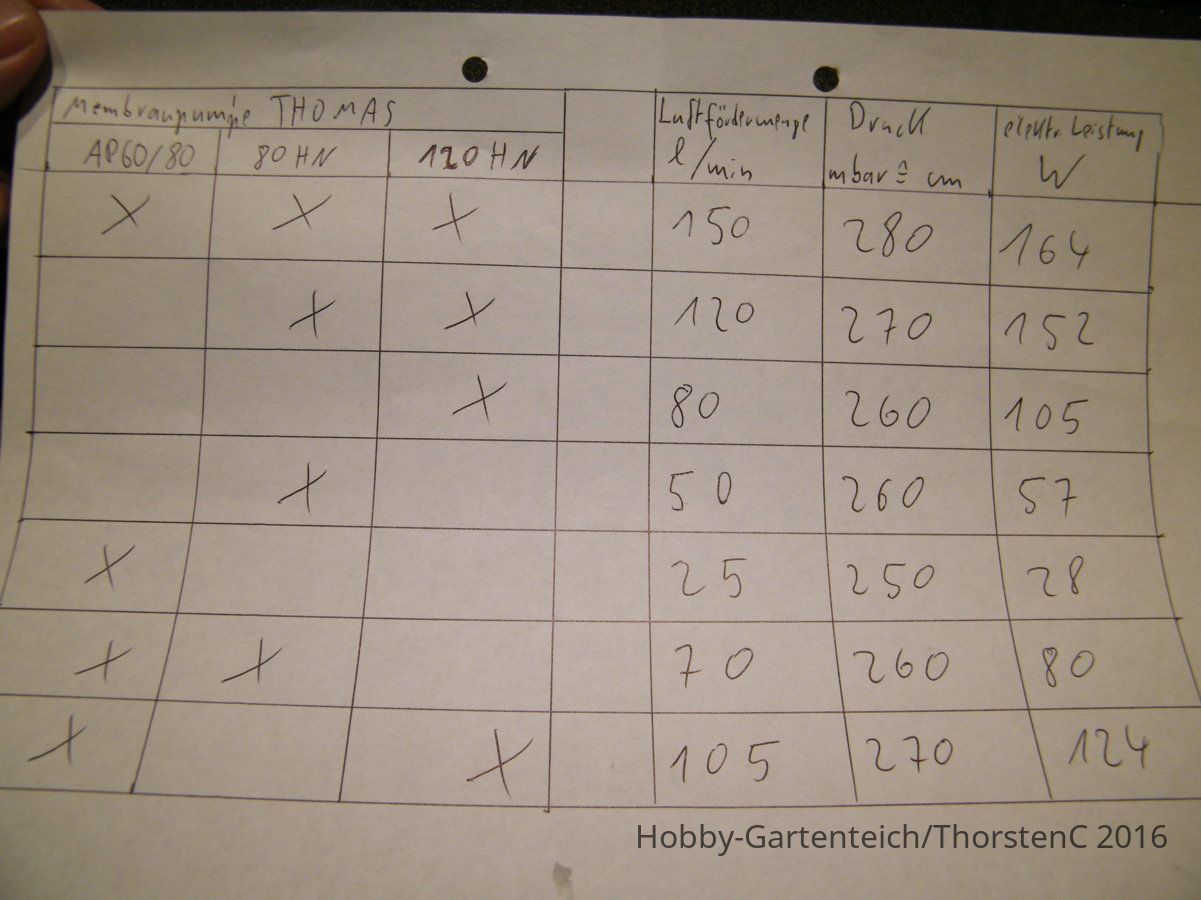 Membranpumpe THOMAS Luftfördermenge Druck elektr. Leistung
AP60/80 80 HN 120 HN l/min mbar ≙ cm W
X X X 150 280 164
X X 120 270 152
X 80 260 105
X 50 260 57
X 25 250 28
X X 70 260 80
X X 105 270 124
Hobby-Gartenteich/ThorstenC 2016